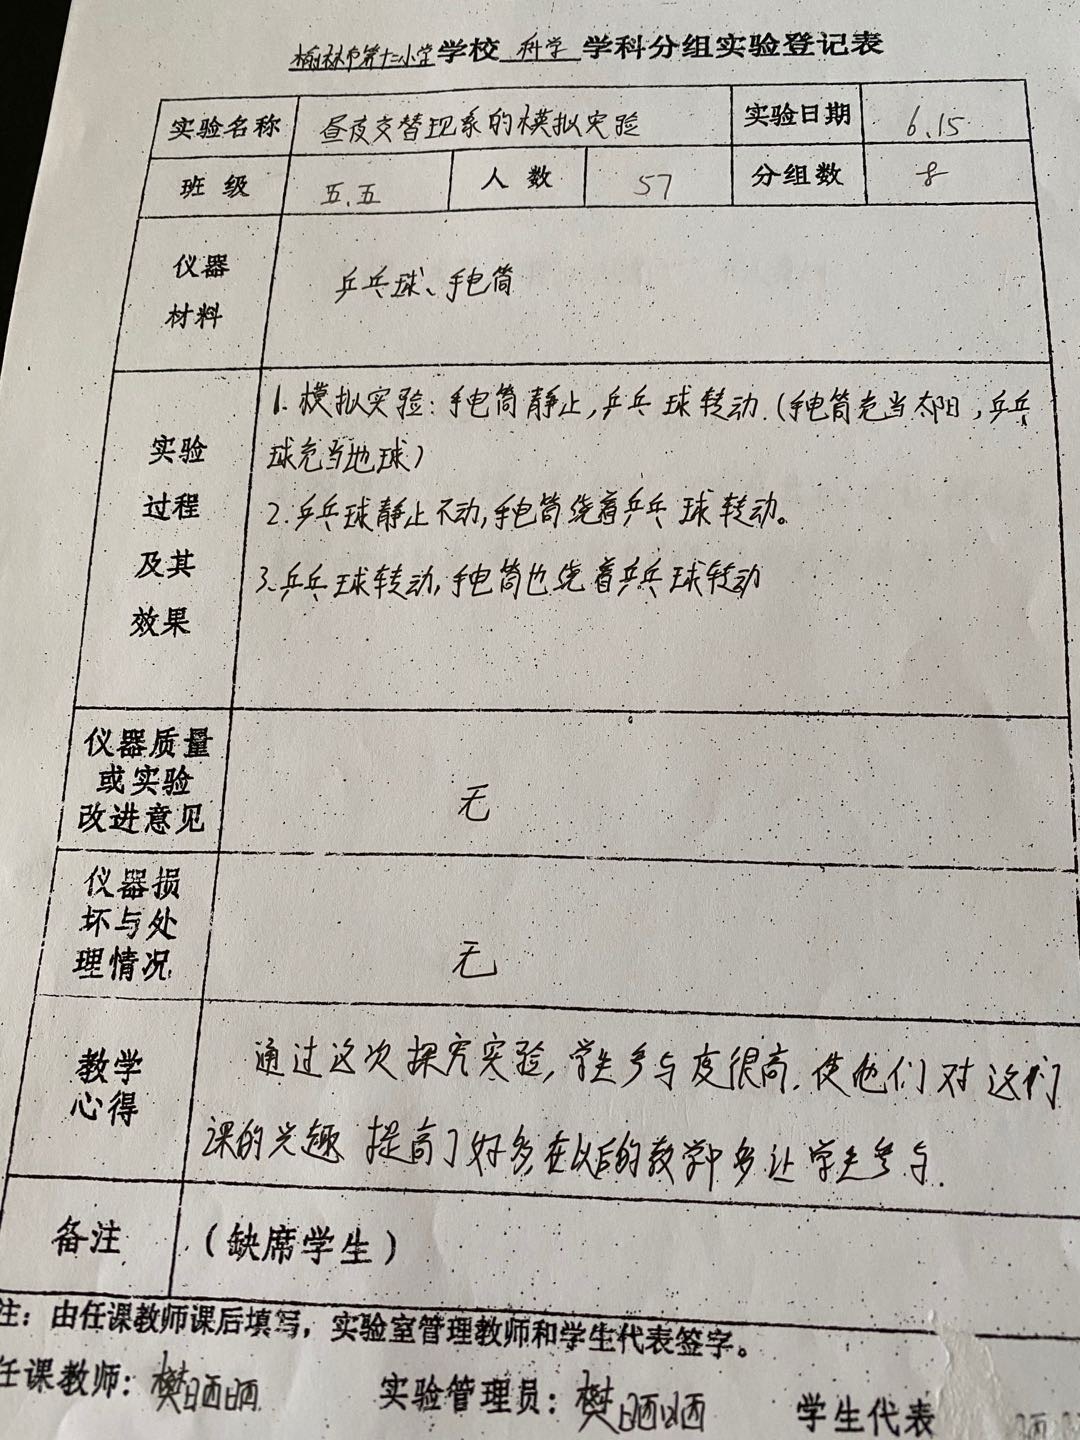 榆林市第十二小学学校 科学 学科分组实验登记表
实验名称 昼夜交替现象的模拟实验 实验日期 6.15
班 级 五.五 人 数 57 分组数 8
仪器
材料
乒乓球、手电筒
实验
过程
及其
效果
1. 模拟实验:手电筒静止,乒乓球转动.(手电筒充当太阳,乒乓
球充当地球)
2.乒乓球静止不动,手电筒绕着乒乓球转动。
3.乒乓球转动,手电筒也绕着乒乓球转动
仪器质量
或实验
改进意见
无
仪器损
坏与处
理情况
无
教学
心得
通过这次探究实验,学生参与度很高.使他们对这门
课的兴趣提高了好多,在以后的教学中多让学生参与.
备注 (缺席学生)
注:由任课教师课后填写,实验室管理教师和学生代表签字。
任课教师:樊晒晒 实验管理员:樊晒晒 学生代表